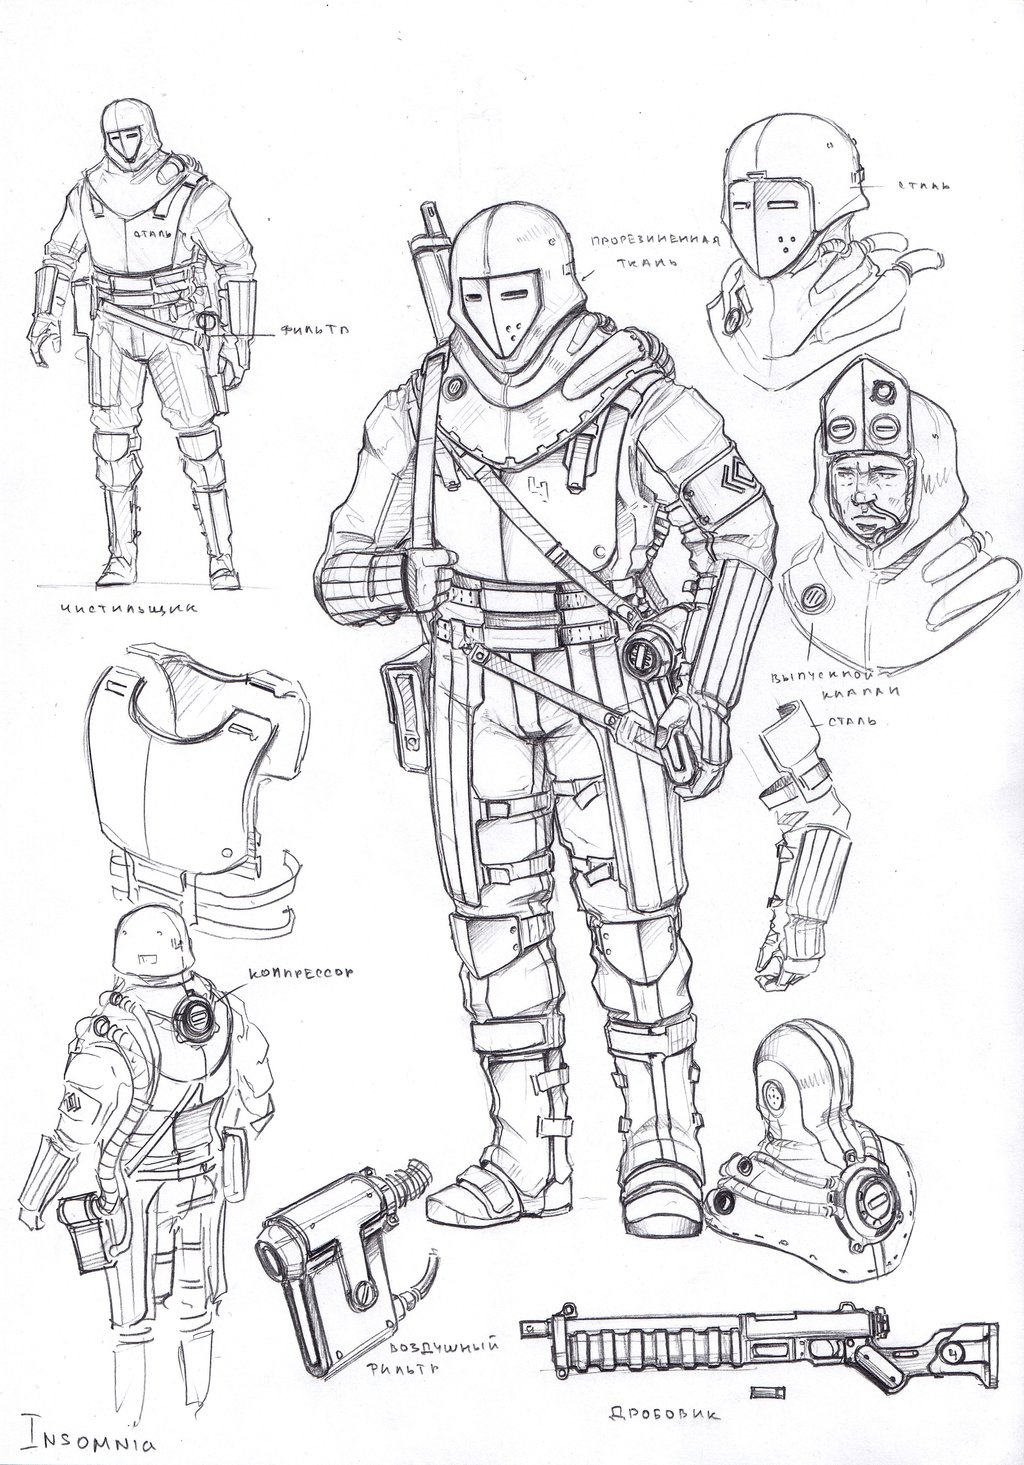 сталь
сталь
прорезиненная
ткань
фильтр
чистильщик
выпускной
клапан
сталь
компрессор
воздушный
фильтр
дробовик
4
4
Insomnia